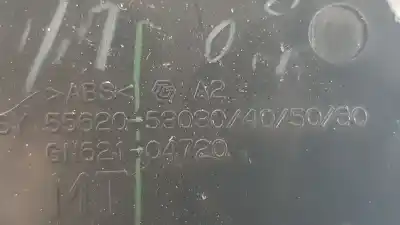 >ABS< A2
55620-53030/40/50/60
GN621-04720
MT